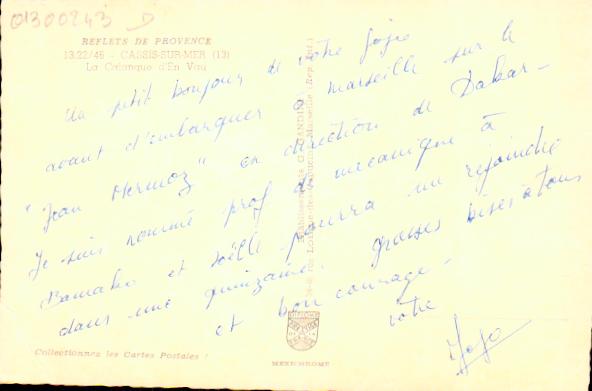 01300243 D
REFLETS DE PROVENCE
13.22/46 - CASSIS-SUR-MER (13)
La Calanque d'En Vau
Un petit bonjour de votre Jojo
avant d'embarquer à Marseille sur le
"Jean Mermoz" en direction de Dakar -
Je suis nommé prof de mécanique à
Bamako et Joëlle pourra me rejoindre
dans une quinzaine. grosses bises à tous
et bon courage -
votre
Jojo
GANDINI
Marseille
Collectionnez les Cartes Postales !
MEXICHROME